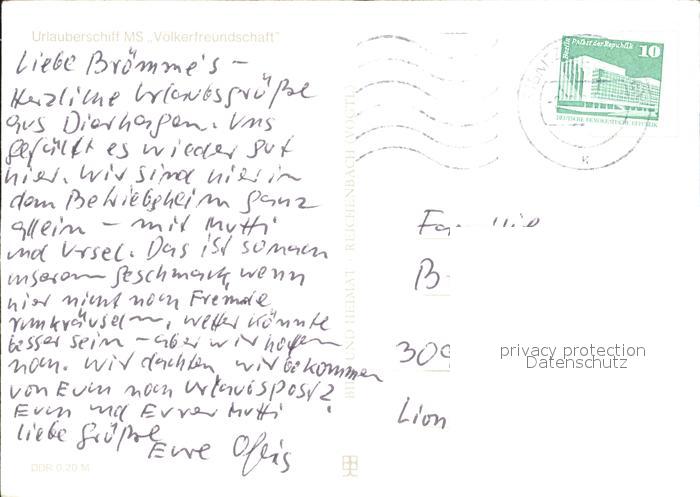 Urlauberschiff MS „Völkerfreundschaft"
Liebe Brömme's –
Herzliche Urlaubsgrüße
aus Dierhagen. Uns
gefällt es wieder gut
hier. Wir sind hier in
dem Betriebsheim ganz
allein – mit Mutti
und Ursel. Das ist so nach
unserem Geschmack, wenn
hier nicht noch Fremde
rumkräuseln, Wetter könnte
besser sein – aber wir hoffen
noch. Wir dachten, wir bekommen
von Euch noch Urlaubspost?
Euch und Eurer Mutti
liebe Grüße
Eure
DDR 0,20 M
BILD UND HEIMAT REICHENBACH
Berlin Palast der Republik
10
DEUTSCHE DEMOKRATISCHE REPUBLIK
B
30
Lion
privacy protection
Datenschutz